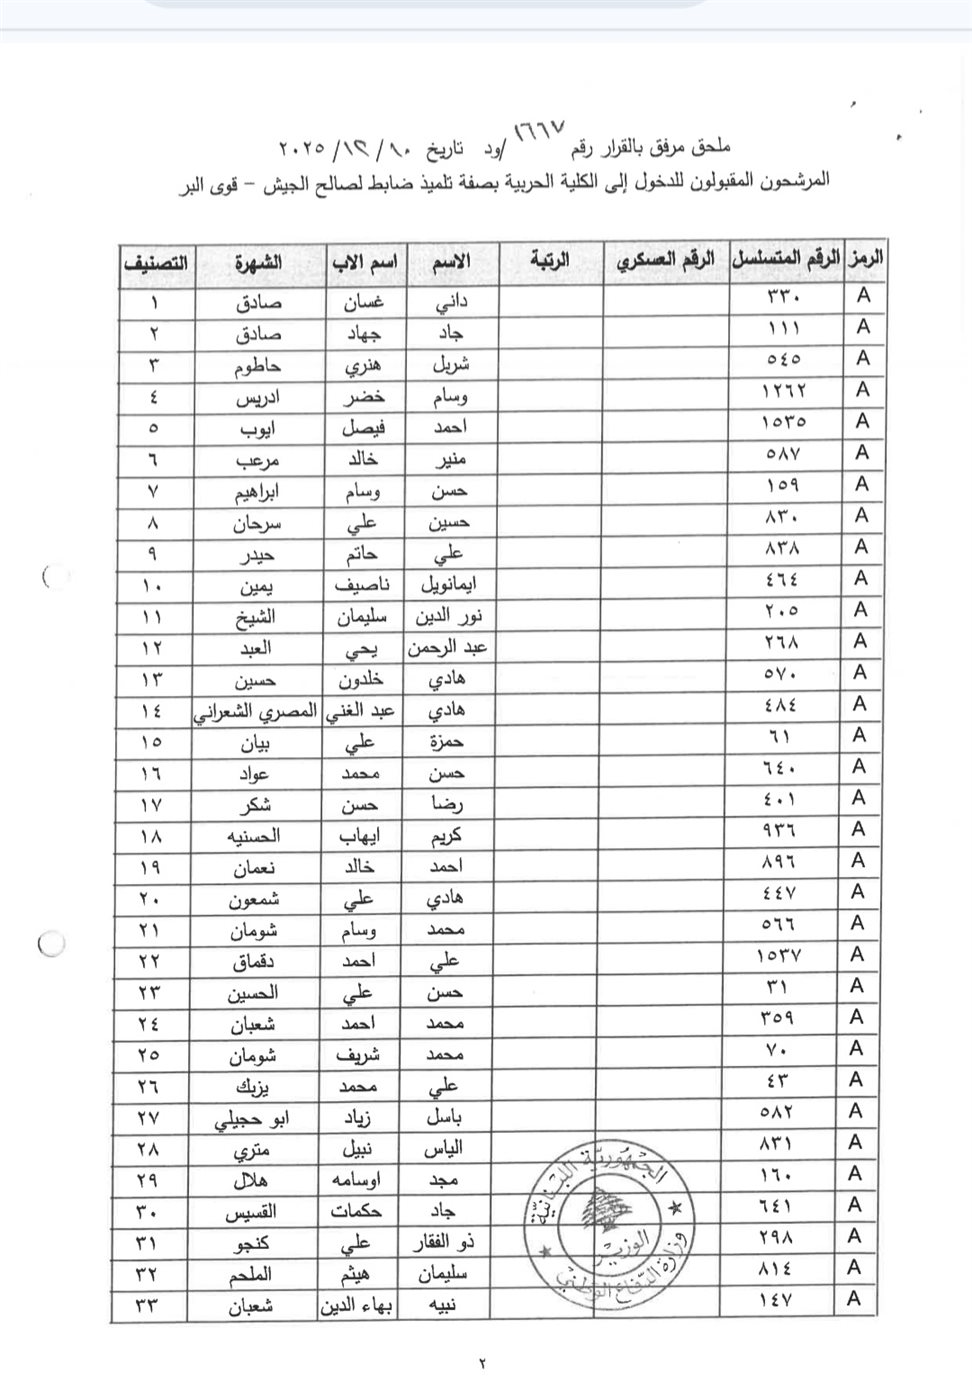 ملحق مرفق بالقرار رقم ١٦٦٧ /ود تاريخ ١٠ /١٢/ ٢٠٢٥
المرشحون المقبولون للدخول إلى الكلية الحربية بصفة تلميذ ضابط لصالح الجيش – قوى البر
الرمز الرقم المتسلسل الرقم العسكري الرتبة الاسم اسم الاب الشهرة التصنيف
A ٣٣٠ داني غسان صادق ١
A ١١١ جاد جهاد صادق ٢
A ٥٤٥ شربل هنري حاطوم ٣
A ١٢٦٢ وسام خضر ادريس ٤
A ١٥٣٥ احمد فيصل ايوب ٥
A ٥٨٧ منير خالد مرعب ٦
A ١٥٩ حسن وسام ابراهيم ٧
A ٨٣٠ حسين علي سرحان ٨
A ٨٣٨ علي حاتم حيدر ٩
A ٤٦٤ ايمانويل ناصيف يمين ١٠
A ٢٠٥ نور الدين سليمان الشيخ ١١
A ٢٦٨ عبد الرحمن يحي العبد ١٢
A ٥٧٠ هادي خلدون حسين ١٣
A ٤٨٤ هادي عبد الغني المصري الشعراني ١٤
A ٦١ حمزة علي بيان ١٥
A ٦٤٠ حسن محمد عواد ١٦
A ٤٠١ رضا حسن شكر ١٧
A ٩٣٦ كريم ايهاب الحسنيه ١٨
A ٨٩٦ احمد خالد نعمان ١٩
A ٤٤٧ هادي علي شمعون ٢٠
A ٥٦٦ محمد وسام شومان ٢١
A ١٥٣٧ علي احمد دقماق ٢٢
A ٣١ حسن علي الحسين ٢٣
A ٣٥٩ محمد احمد شعبان ٢٤
A ٧٠ محمد شريف شومان ٢٥
A ٤٣ علي محمد يزبك ٢٦
A ٥٨٢ باسل زياد ابو حجيلي ٢٧
A ٨٣١ الياس نبيل متري ٢٨
A ١٦٠ مجد اوسامه هلال ٢٩
A ٦٤١ جاد حكمات القسيس ٣٠
A ٢٩٨ ذو الفقار علي كنجو ٣١
A ٨١٤ سليمان هيثم الملحم ٣٢
A ١٤٧ نبيه بهاء الدين شعبان ٣٣
الجمهورية اللبنانية
الوزير
وزارة الدفاع الوطني
٢